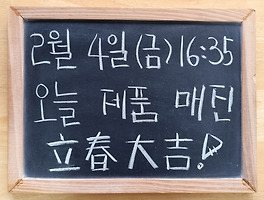 2월 4일(금)16:35
오늘 제품 매진
立春大吉!